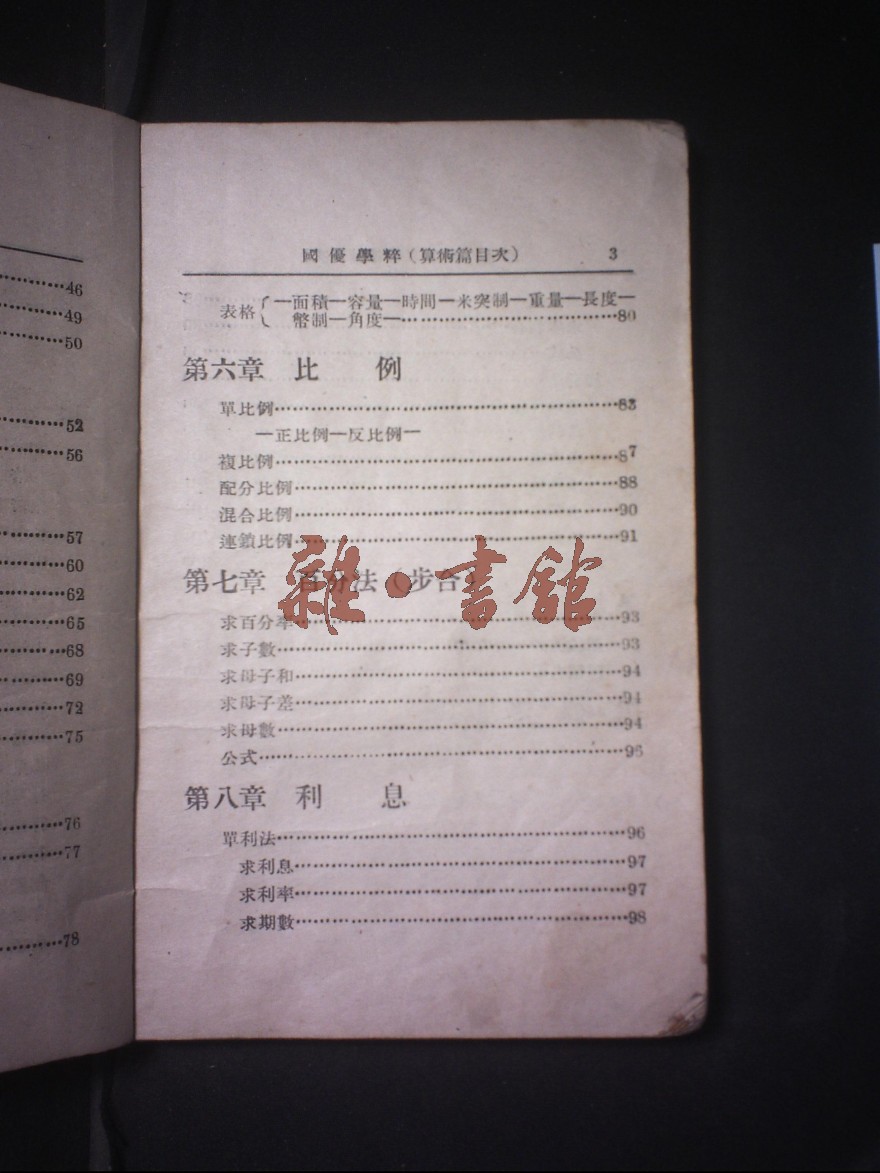 46
49
50
52
56
57
60
62
65
68
69
72
75
76
77
78
國優學粹(算術篇目次) 3
表格{—面積—容量—時間—米突制—重量—長度—
幣制—角度—……80
第六章 比 例
單比例……83
—正比例—反比例—
複比例……87
配分比例……88
混合比例……90
連鎖比例……91
第七章 百分法(步合)
求百分率……93
求子數……93
求母子和……94
求母子差……94
求母數……94
公式……95
第八章 利 息
單利法……96
求利息……97
求利率……97
求期數……98
雜·書館